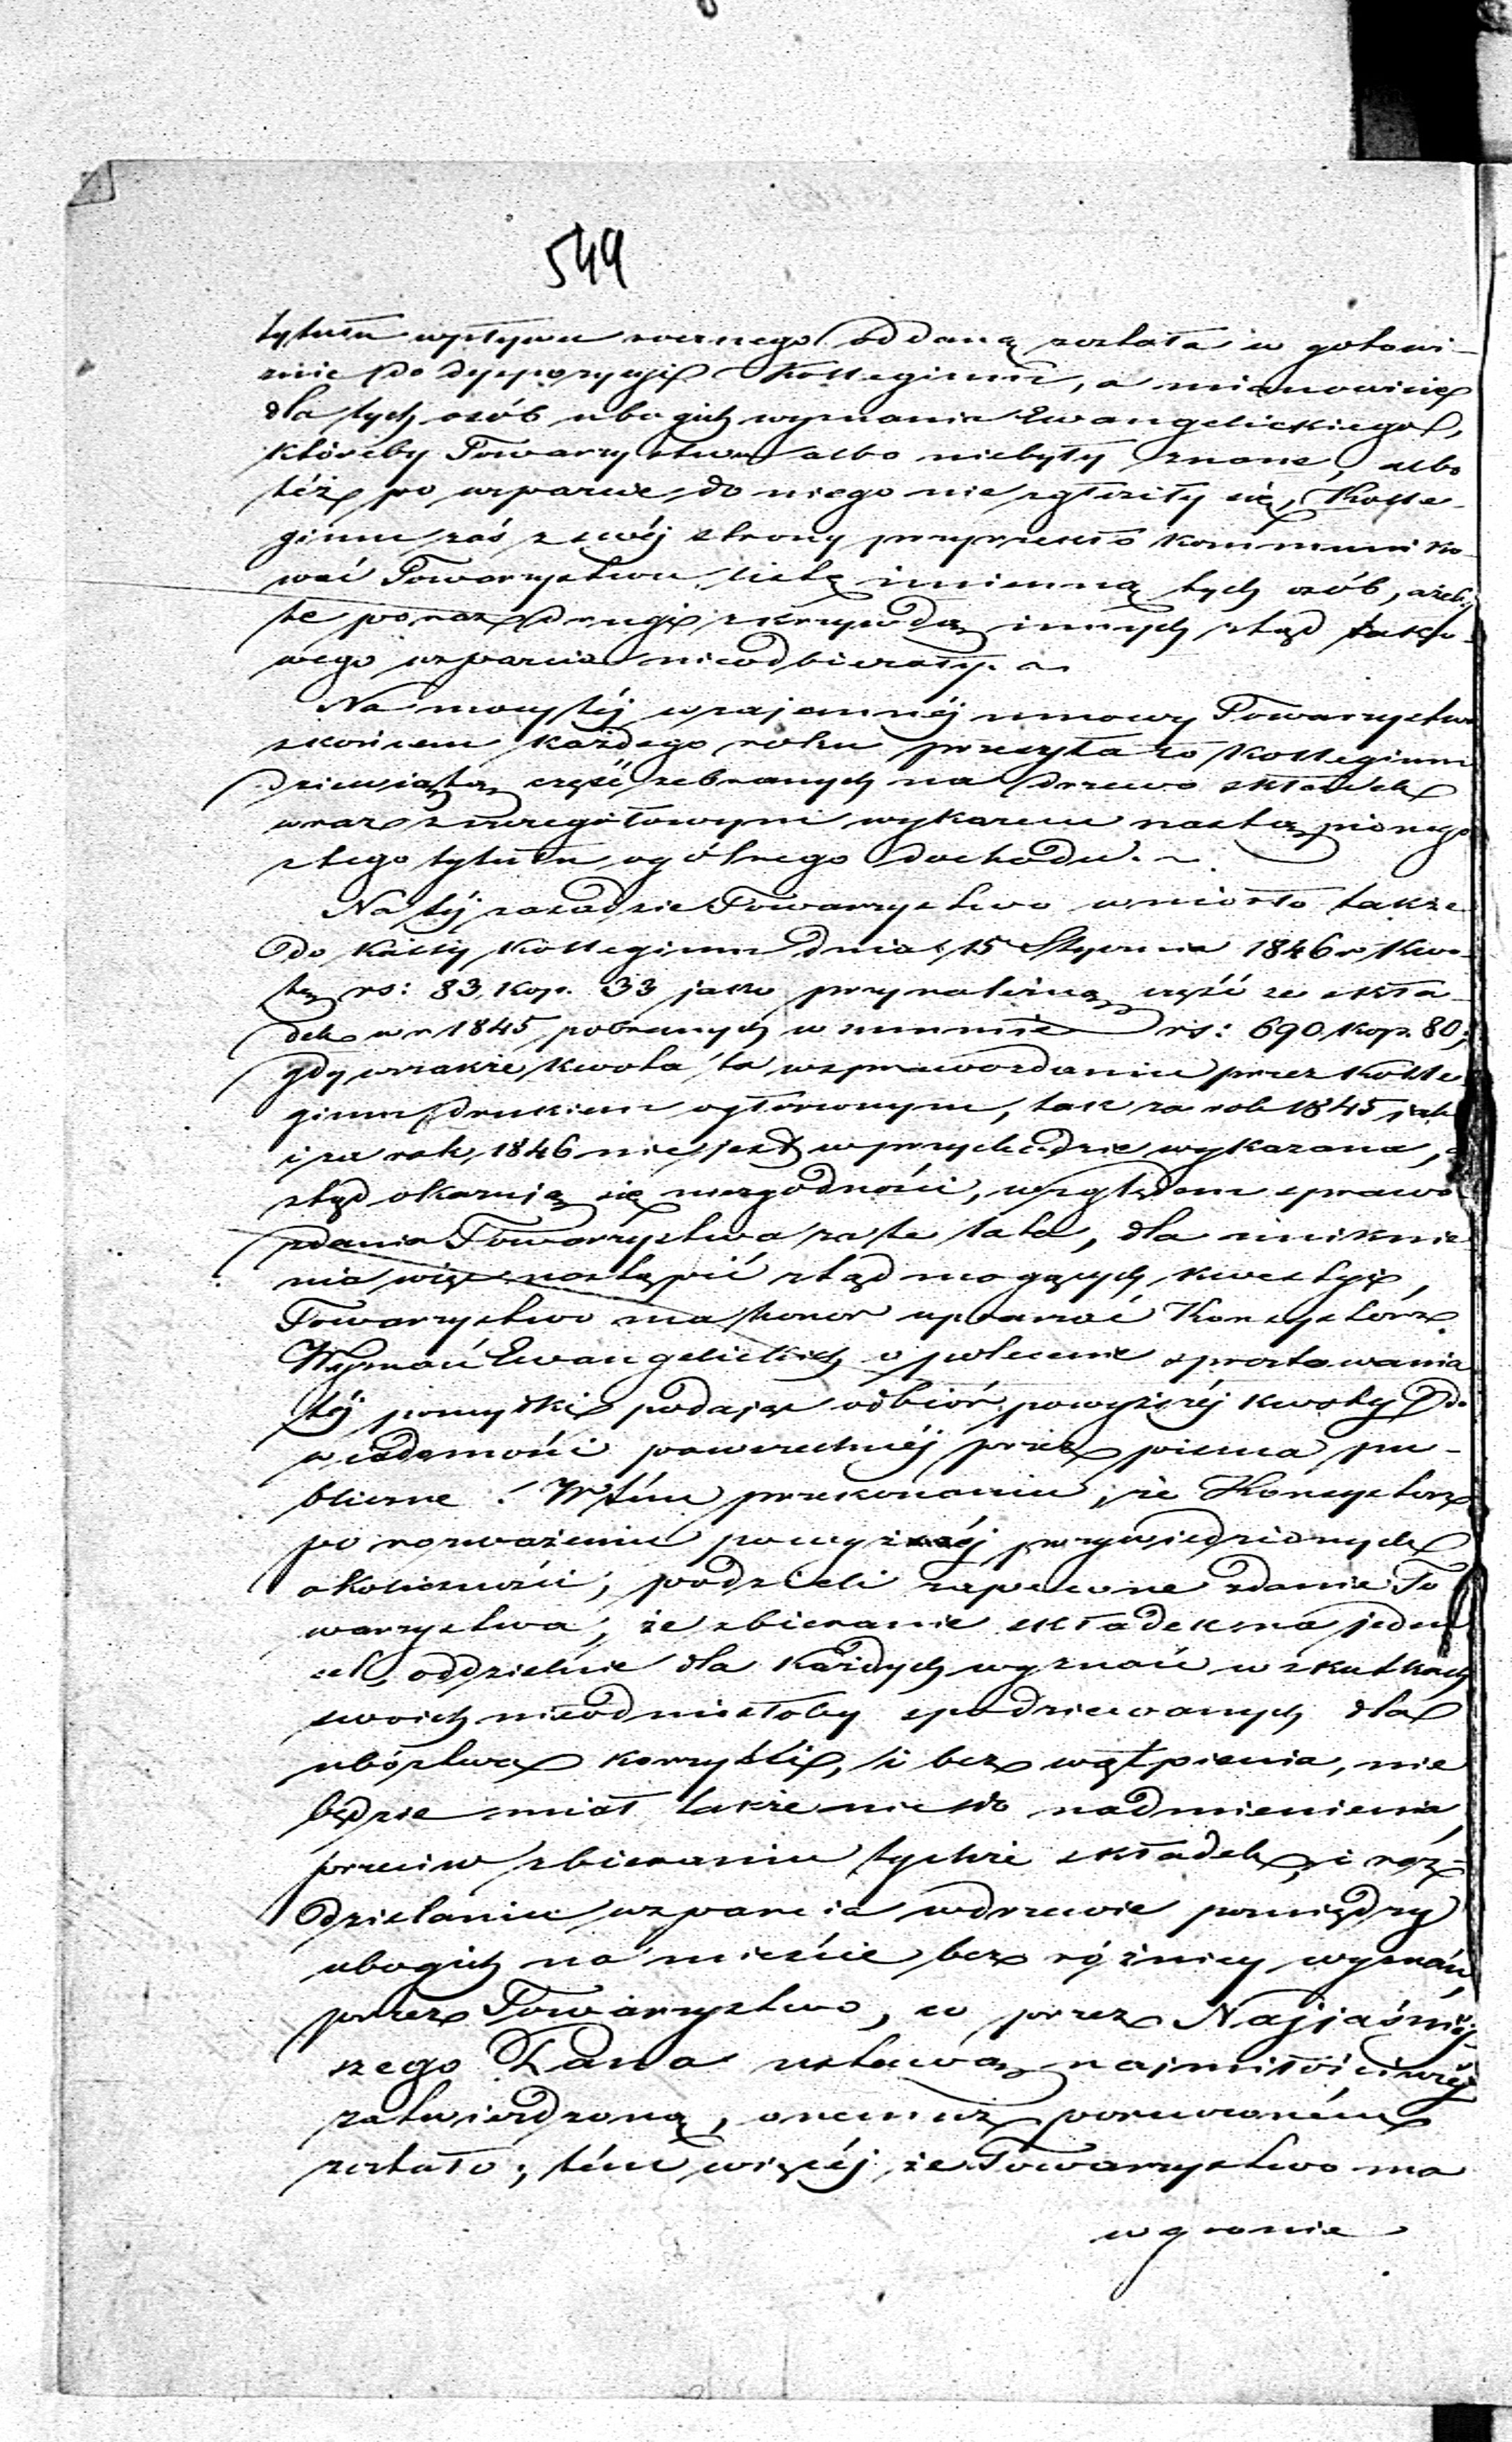 549
tytułu wpływu rocznego oddaną została w gotowi-
źnie do dyspozycyi Kollegium, a mianowicie
dla tych osób ubogich wyznania Ewangelickiego,
któreby Towarzystwu albo niebyły znane, albo
też po wsparcie do niego nie zgłosiły się, Kolle-
gium zaś z swéj strony przyrzekło kommuniko-
wać Towarzystwu listę imienną tych osób, ażeby
te poraz drugi z krzywdą innych ztąd tako-
wego wsparcia nieodbierały.
Na mocy téj wzajemnéj umowy Towarzystwo
z końcem każdego roku przesyła do Kollegium
dziewiątą część zebranych na drzewo składek
wraz z szczegółowym wykazem nastąpionego
z tego tytułu ogólnego dochodu.
Na téj zasadzie Towarzystwo wniosło także
do kassy Kollegium dnia 15 Stycznia 1846 r kwo-
tę rs: 83, kop. 33 jako przynależną część ze skła-
dek w r 1845 pobranych w summie rs: 690 kop. 80;
gdy wszakże kwota ta w sprawozdaniu przez Kolle
gium drukiem ogłoszonym, tak za rok 1845 jak
i za rok 1846 nie jest w przychodzie wykazana, a
ztąd okazują się niezgodności, względem sprawo
zdania Towarzystwa za te lata, dla uniknie
nia więc nastąpić ztąd mogących kwestyi,
Towarzystwo ma honor upraszać Konsystorz
Wyznań Ewangelickich o polecenie sprostowania
téj pomyłki podając odbiór powyższéj kwoty do
wiadomości powszechnéj przez pisma pu-
bliczne. W tém przekonaniu, że Konsystorz
po rozważeniu powyżéj przywiedzionych
okoliczności, podzieli zapewne zdanie To
warzystwa, że zbieranie składek na jeden
cel, oddzielnie dla każdych wyznań w skutkach
swoich nieodniosłoby spodziewanych dla
ubóstwa korzyści, i bez wątpienia, nie
będzie miał także nic do nadmienienia
przeciw zbieraniu tychże składek, i roz-
dzielaniu wsparcia w drzewie pomiędzy
ubogich na mieście bez różnicy wyznań,
przez Towarzystwo, co przez Najjaśniéj-
szego Pana ustawą najmiłościwiéj
zatwierdzoną, onemuż poruczoném
zostało; tém więcéj że Towarzystwo ma
w gronie